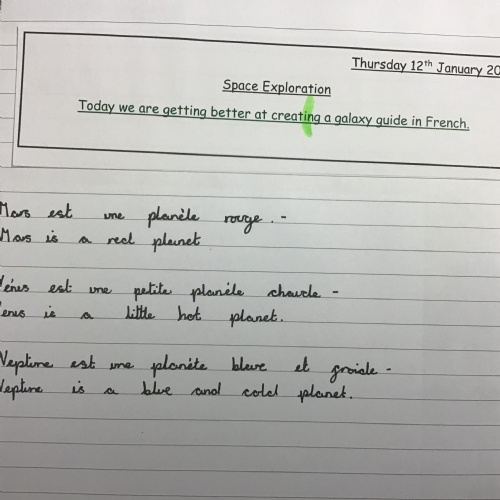 Thursday 12th January 20
Space Exploration
Today we are getting better at creating a galaxy guide in French.
Mars est une planèle rouge. -
Mars is a red planet
Vénus est une petite planèle chaude -
enus is a little hot planet.
Neptune est une planète bleue et froide -
Neptune is a blue and cold planet.